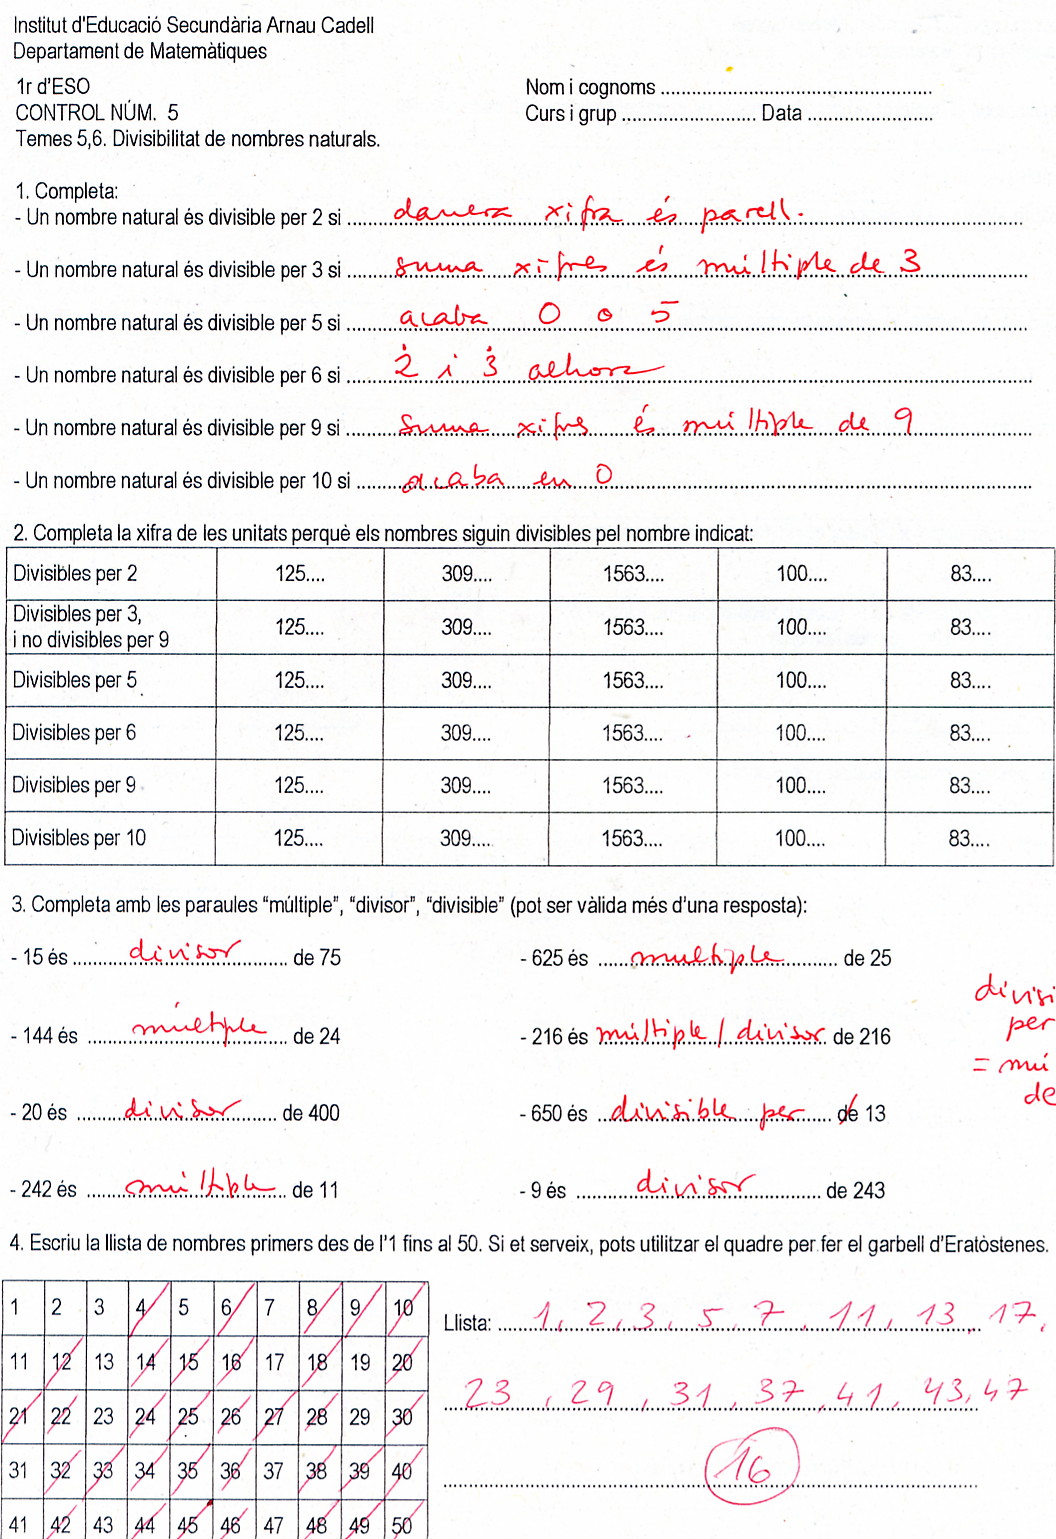 Institut d'Educació Secundària Arnau Cadell
Departament de Matemàtiques
1r d'ESO
Nom i cognoms ....................................................
CONTROL NÚM. 5
Curs i grup .......................... Data ........................
Temes 5,6. Divisibilitat de nombres naturals.
1. Completa:
- Un nombre natural és divisible per 2 si ........ darrera xifra és parell.
- Un nombre natural és divisible per 3 si ........ suma xifres és múltiple de 3
- Un nombre natural és divisible per 5 si ........ acaba 0 o 5
- Un nombre natural és divisible per 6 si ........ 2̇ i 3̇ alhora
- Un nombre natural és divisible per 9 si ........ suma xifres és múltiple de 9
- Un nombre natural és divisible per 10 si ........ acaba en 0
2. Completa la xifra de les unitats perquè els nombres siguin divisibles pel nombre indicat:
Divisibles per 2 125.... 309.... 1563.... 100.... 83....
Divisibles per 3,
i no divisibles per 9 125.... 309.... 1563.... 100.... 83....
Divisibles per 5 125.... 309.... 1563.... 100.... 83....
Divisibles per 6 125.... 309.... 1563.... 100.... 83....
Divisibles per 9 125.... 309.... 1563.... 100.... 83....
Divisibles per 10 125.... 309.... 1563.... 100.... 83....
3. Completa amb les paraules "múltiple", "divisor", "divisible" (pot ser vàlida més d'una resposta):
- 15 és divisor de 75
- 625 és multiple de 25
- 144 és múltiple de 24
- 216 és múltiple / divisor de 216
divisi
per
= mú
de
- 20 és divisor de 400
- 650 és divisible per de 13
- 242 és múltiple de 11
- 9 és divisor de 243
4. Escriu la llista de nombres primers des de l'1 fins al 50. Si et serveix, pots utilitzar el quadre per fer el garbell d'Eratòstenes.
1 2 3 4 5 6 7 8 9 10
11 12 13 14 15 16 17 18 19 20
21 22 23 24 25 26 27 28 29 30
31 32 33 34 35 36 37 38 39 40
41 42 43 44 45 46 47 48 49 50
Llista: 1, 2, 3, 5, 7, 11, 13, 17,
23, 29, 31, 37, 41, 43, 47
16